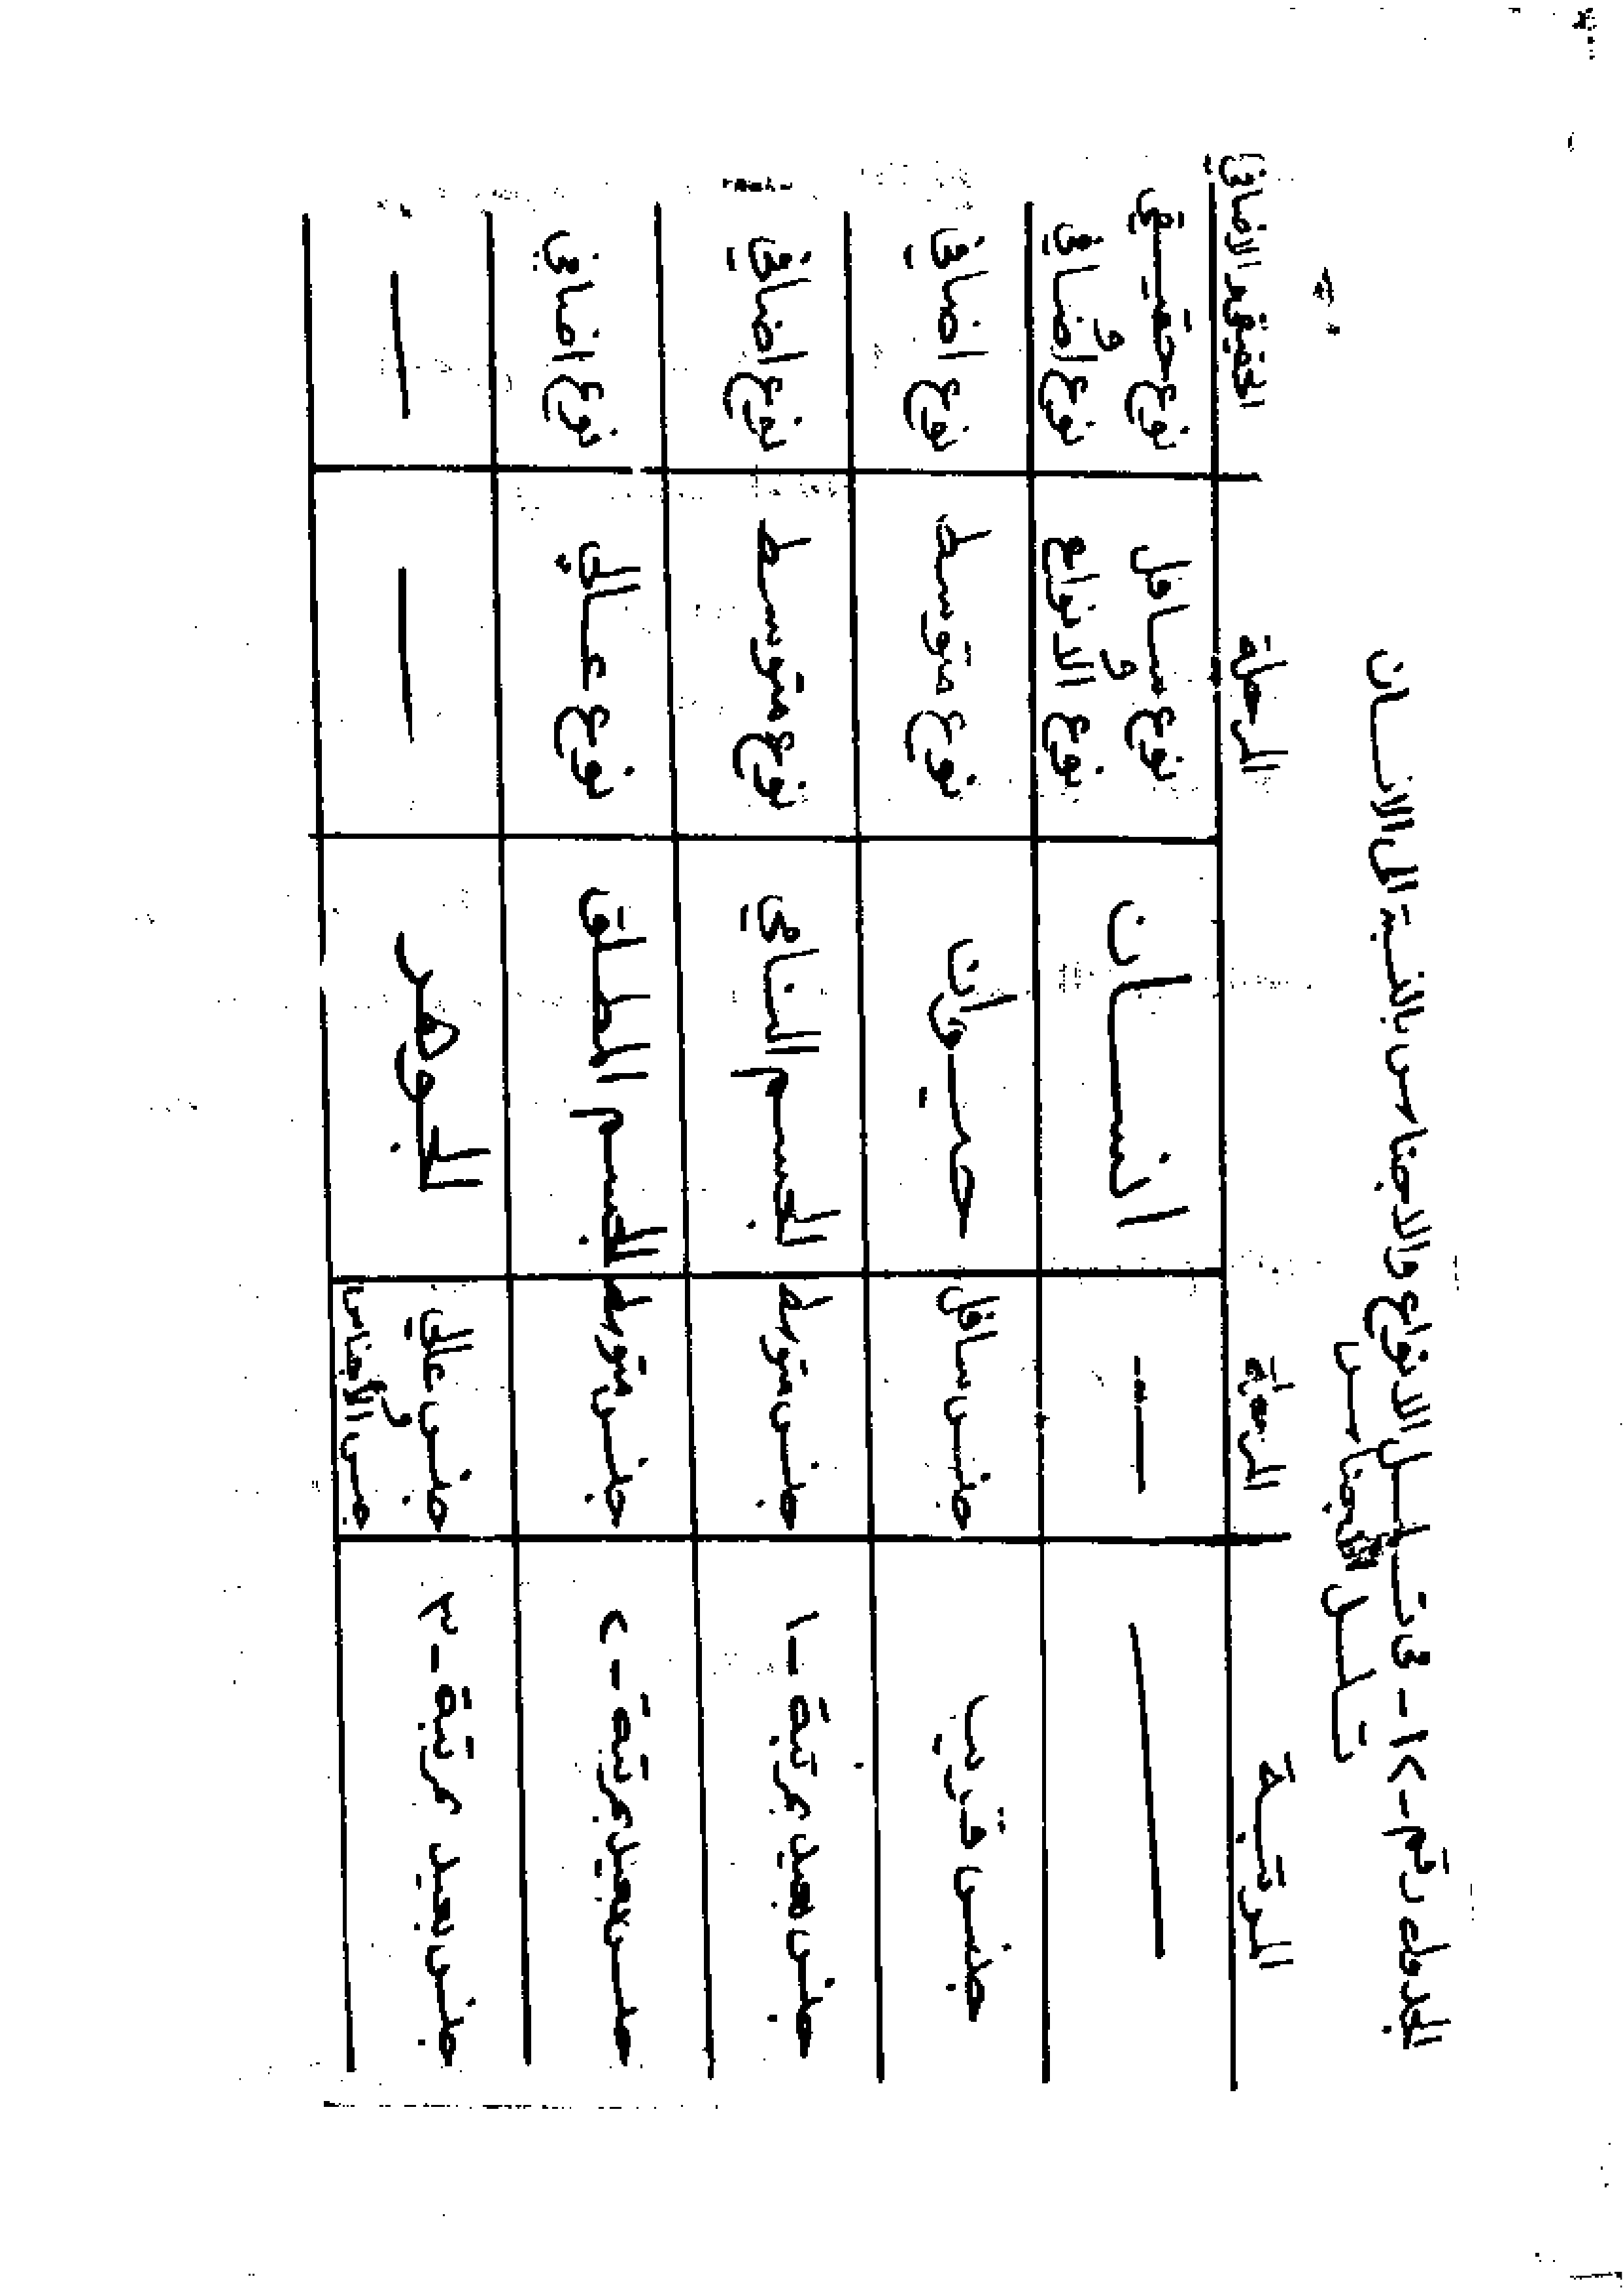 الجدول رقم -١٢- في تسلسل الانواع والاجناس بالنسبة الى الانسان
تسلسل الاجناس
المرتبة المرحلة المرحلة
— — انسان نوع سافل و نوع الانواع نوع حقيقي و نوع اضافي
جنس قريب جنس سافل حيوان نوع متوسط نوع اضافي
جنس بعيد مرتبة -١ جنس متوسط الجسم النامي نوع متوسط نوع اضافي
جنس بعيد مرتبة -٢ جنس متوسط الجسم المطلق نوع عالي نوع اضافي
جنس بعيد مرتبة -٣ جنس عالي و جنس الاجناس الجوهر — —